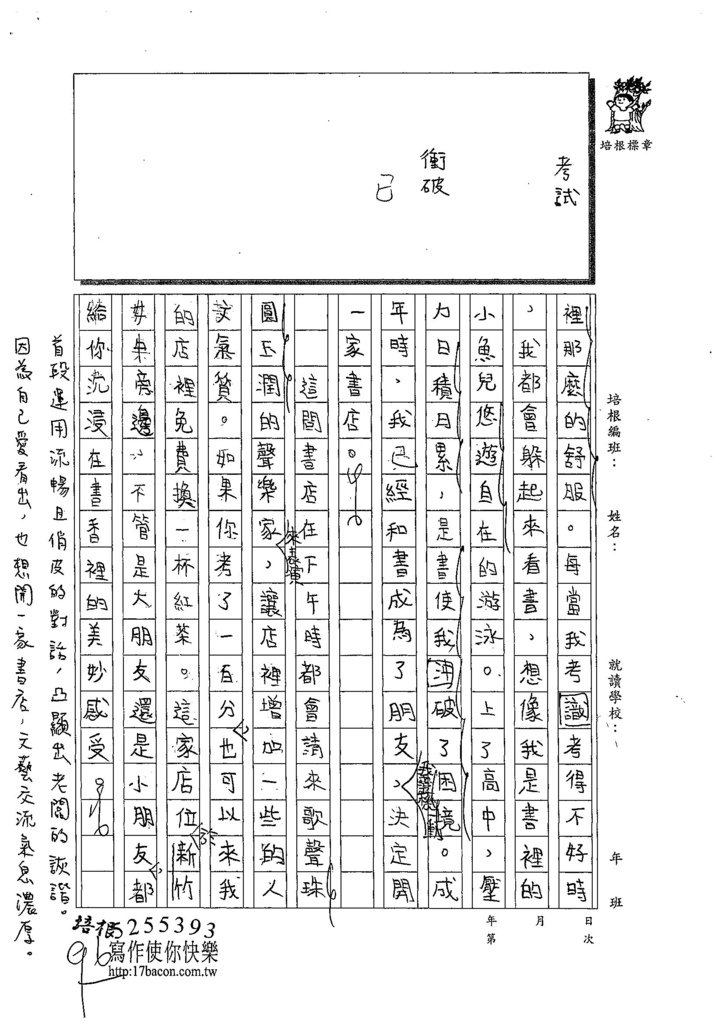 培根標章
考試
衝破
已
培根編班：
姓名：
就讀學校：
年
班
裡那麼的舒服。每當我考識考得不好時
，我都會躲起來看書，想像我是書裡的
小魚兒悠遊自在的游泳。上了高中，壓
力日積日累，是書使我沖破了困境。成
年時，我己經和書成為了朋友，決定開
一家書店。
這間書店在下午時都會請來歌聲珠
圓玉潤的聲樂家，讓店裡增加一些的人
來表演
文氣質。如果你考了一百分也可以來我
的店裡免費換一杯紅茶。這家店位新竹
於
好市旁邊，不管是大朋友還是小朋友都
給你沈浸在書香裡的美妙感受。
日
次
月
年
第
首段運用流暢且俏皮的對話，凸顯出老闆的詼諧。
因為自己愛看出，也想開一家書店，文藝交流氣息濃厚。
培根5255393
96
寫作使你快樂
http:17bacon.com.tw